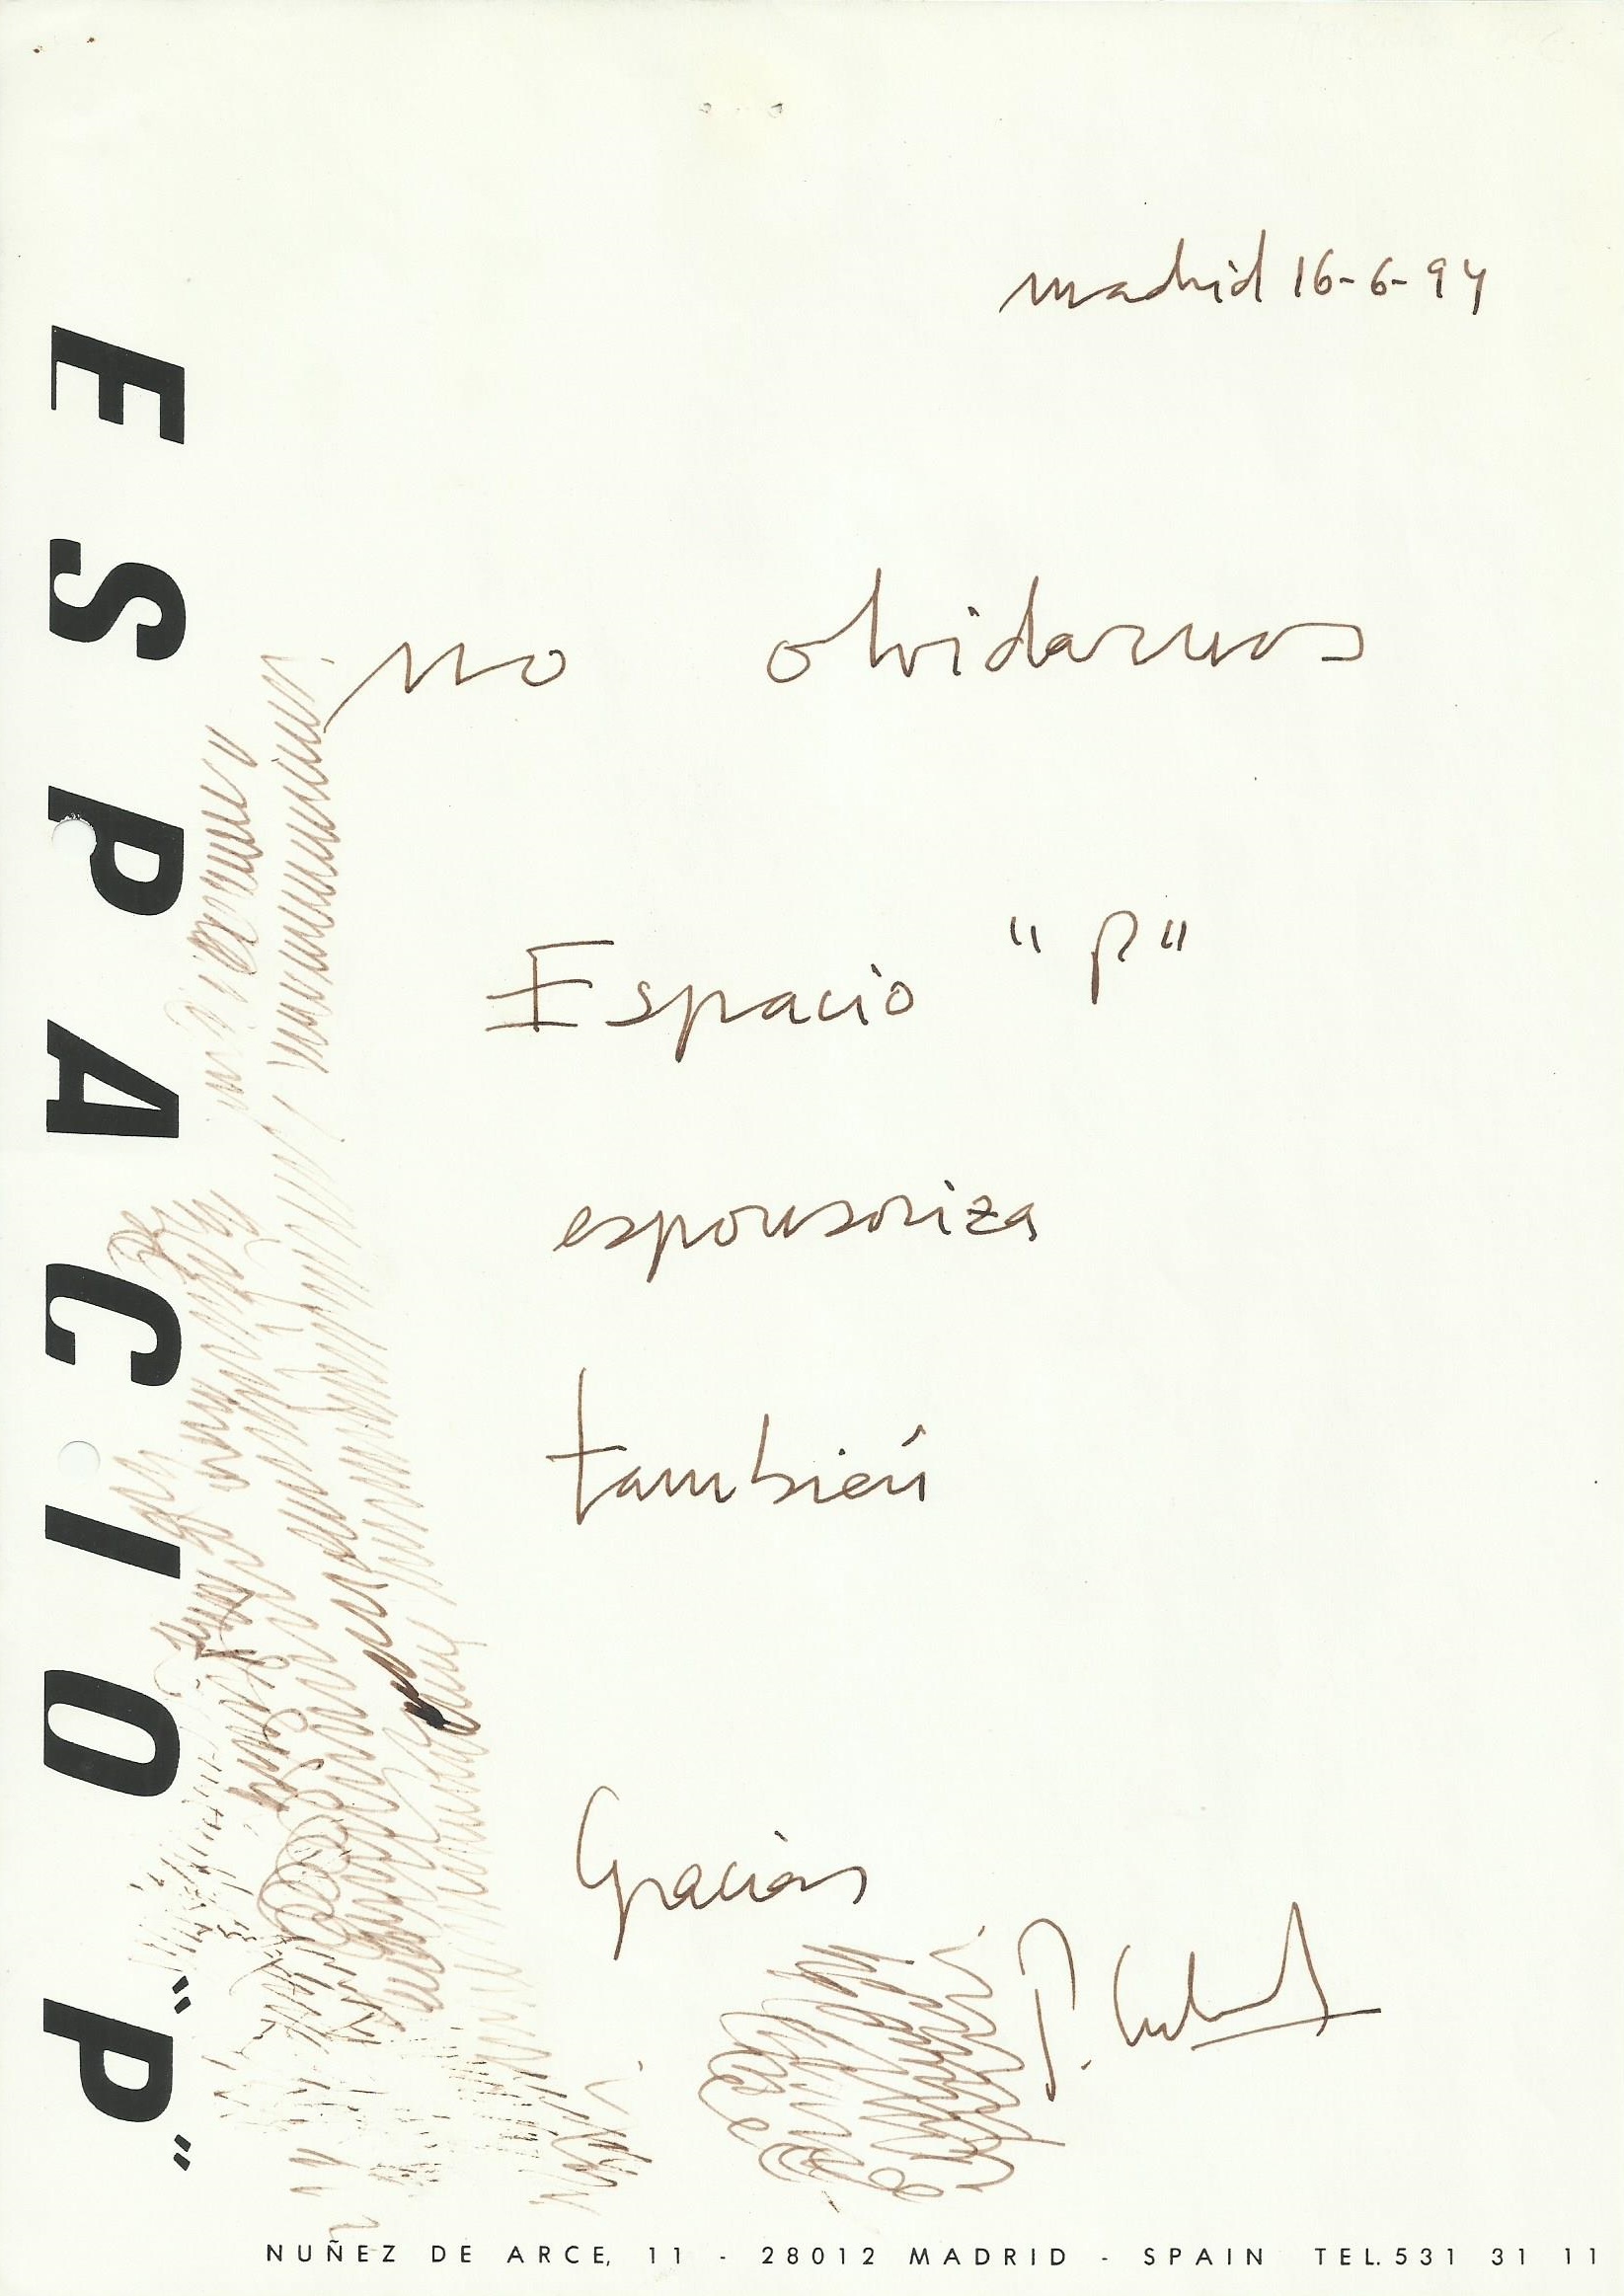 madrid 16-6-94
no olvidarnos
Espacio "P"
esponsoriza
también
Gracias
P.
ESPACIO "P"
NUÑEZ DE ARCE, 11 - 28012 MADRID - SPAIN TEL. 531 31 11